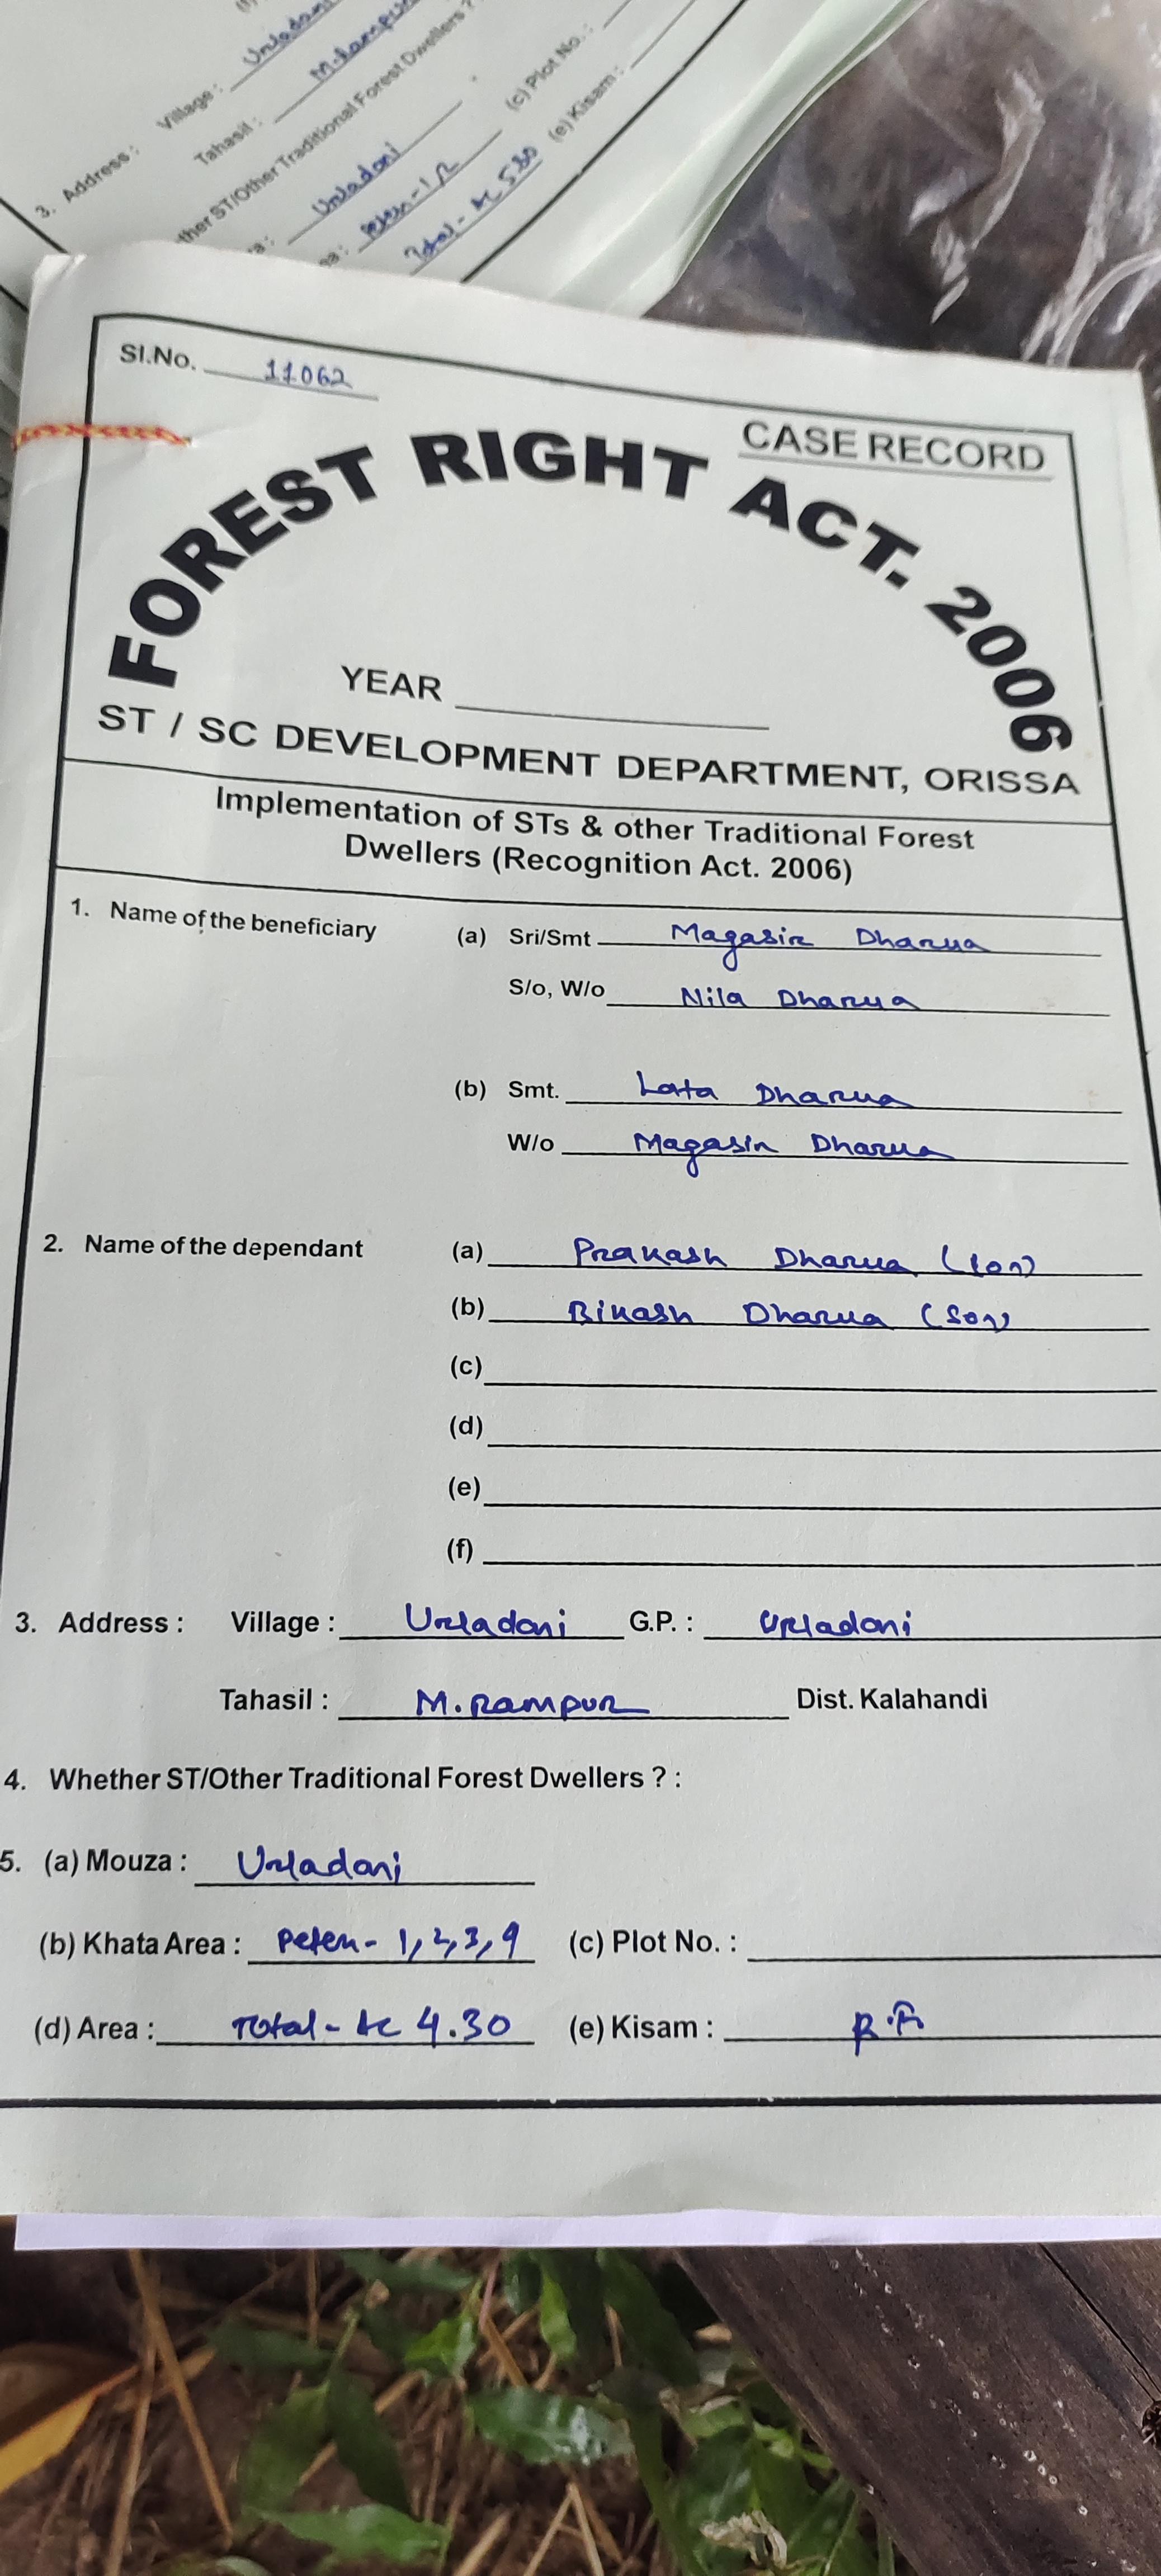 Village : Urladoni
3. Address :
Tahasil : M.Rampur
ther ST/Other Traditional Forest Dwellers ?
Urladoni
(c) Plot No. :
(e) Kisam :
Total - Ac 5.30
Sl.No. 11062
CASE RECORD
FOREST RIGHT ACT. 2006
YEAR
ST / SC DEVELOPMENT DEPARTMENT, ORISSA
Implementation of STs & other Traditional Forest
Dwellers (Recognition Act. 2006)
1. Name of the beneficiary (a) Sri/Smt Magasir Dharua
S/o, W/o Nila Dharua
(b) Smt. Lata Dharua
W/o Magasir Dharua
2. Name of the dependant (a) Prakash Dharua (son)
(b) Bikash Dharua (son)
(c)
(d)
(e)
(f)
3. Address : Village : Urladoni G.P. : Urladoni
Tahasil : M.Rampur Dist. Kalahandi
4. Whether ST/Other Traditional Forest Dwellers ? :
5. (a) Mouza : Urladoni
(b) Khata Area : 1, 2, 3, 4 (c) Plot No. :
(d) Area : Total - Ac 4.30 (e) Kisam : R.F